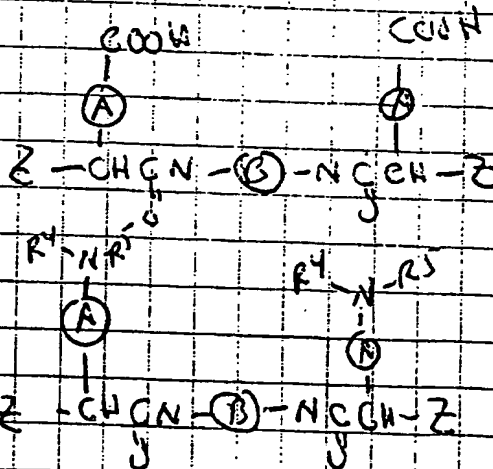 COOH COOH
A A
Z - CH C N - B - N C CH - Z
O
R4 N R5 R4 N R5
A A
Z - CH C N - B - N C CH - Z